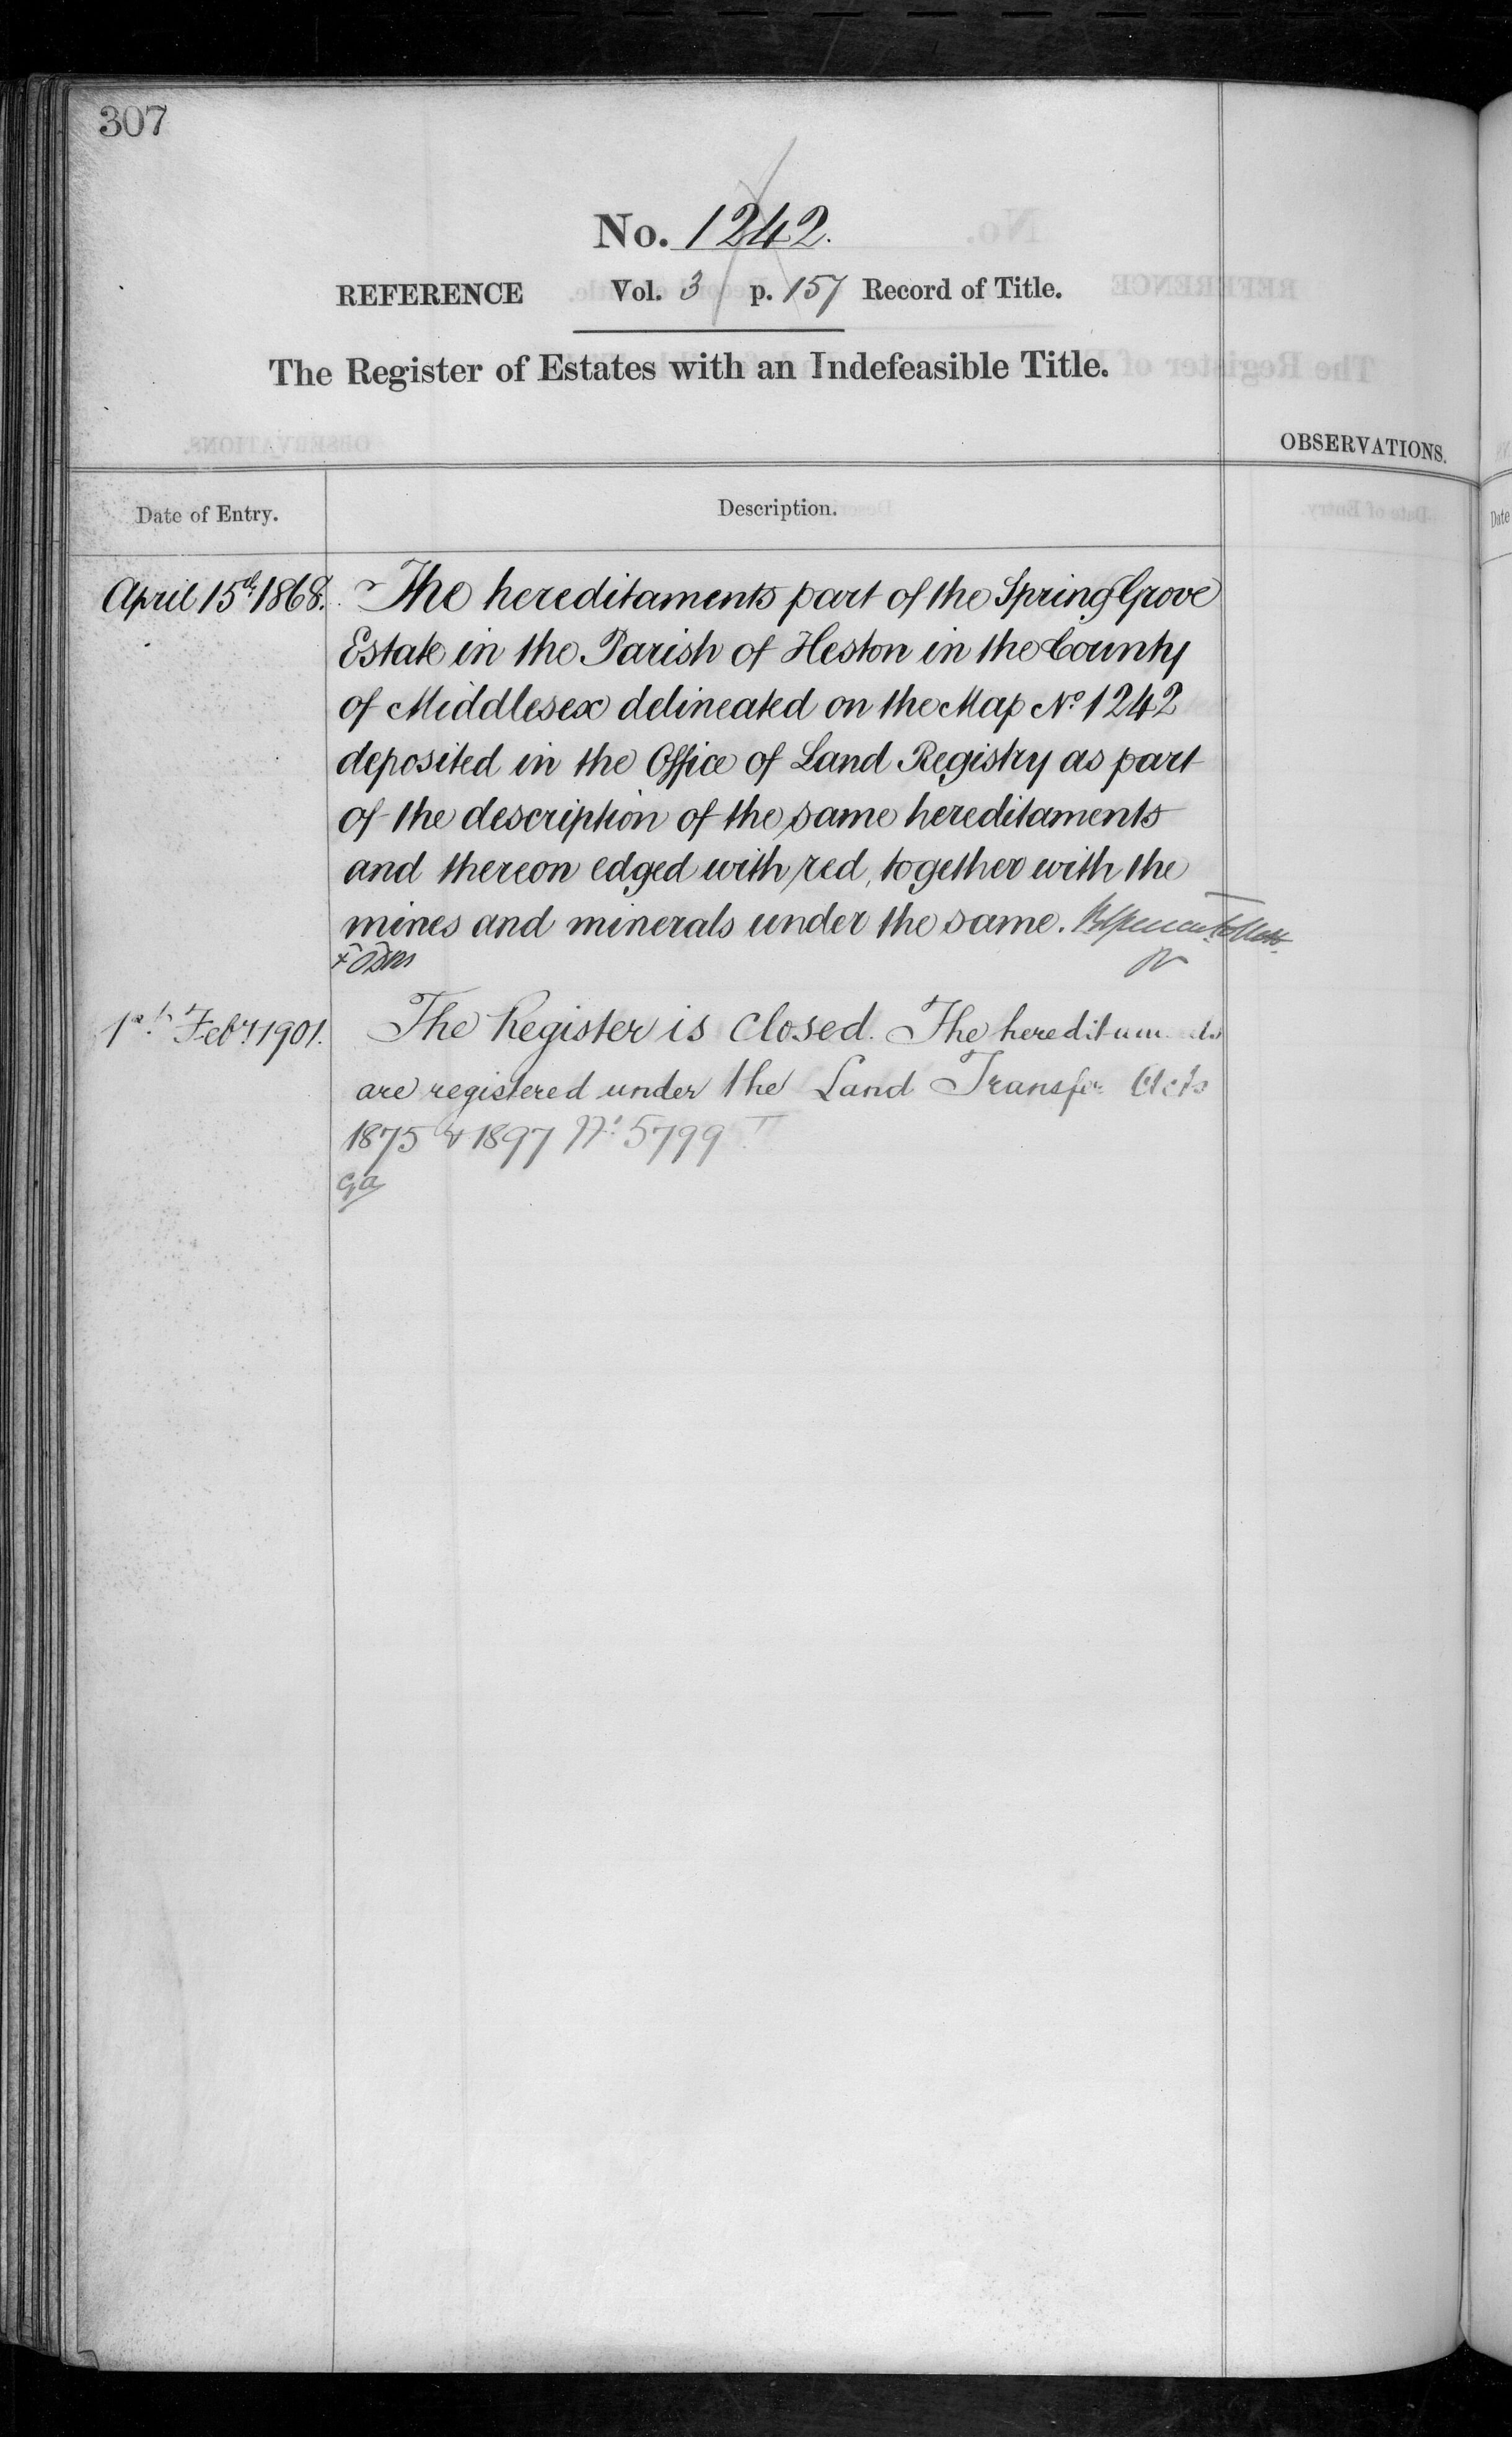 307
No. 1242.
REFERENCE Vol. 3 p. 157 Record of Title.
The Register of Estates with an Indefeasible Title.
OBSERVATIONS.
Date of Entry. Description.
April 15th 1868. The hereditaments part of the Spring Grove
Estate in the Parish of Heston in the County
of Middlesex delineated on the Map No 1242
deposited in the Office of Land Registry as part
of the description of the same hereditaments
and thereon edged with red, together with the
mines and minerals under the same.
1st Feby 1901. The Register is closed. The hereditaments
are registered under the Land Transfer Acts
1875 & 1897 No 5799
Date